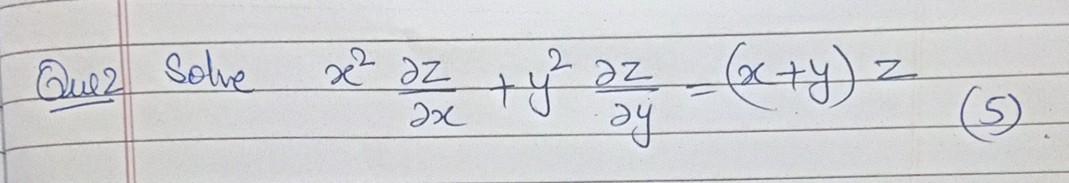 Que2 Solve x² ∂z/∂x + y² ∂z/∂y = (x+y) z (5)